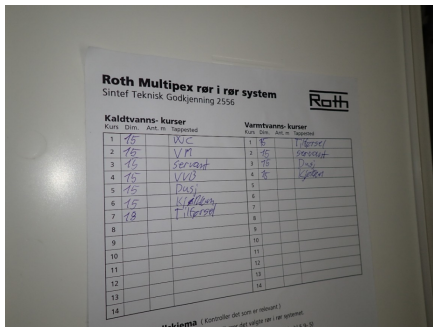 Roth Multipex rør i rør system
Sintef Teknisk Godkjenning 2556
Roth
Kaldtvanns- kurser
Kurs Dim. Ant. m Tappested
1 15 WC
2 15 VM
3 15 Servant
4 15 VVB
5 15 Dusj
6 15 Kjøkken
7 18 Tilførsel
8
9
10
11
12
13
14
Varmtvanns- kurser
Kurs Dim. Ant. m Tappested
1 Tilførsel
2 15 Servant
3 15 Dusj
4 Kjøken
5
6
7
8
9
10
11
12
13
14
( Kontroller det som er relevant )
det valgte rør i rør systemet.